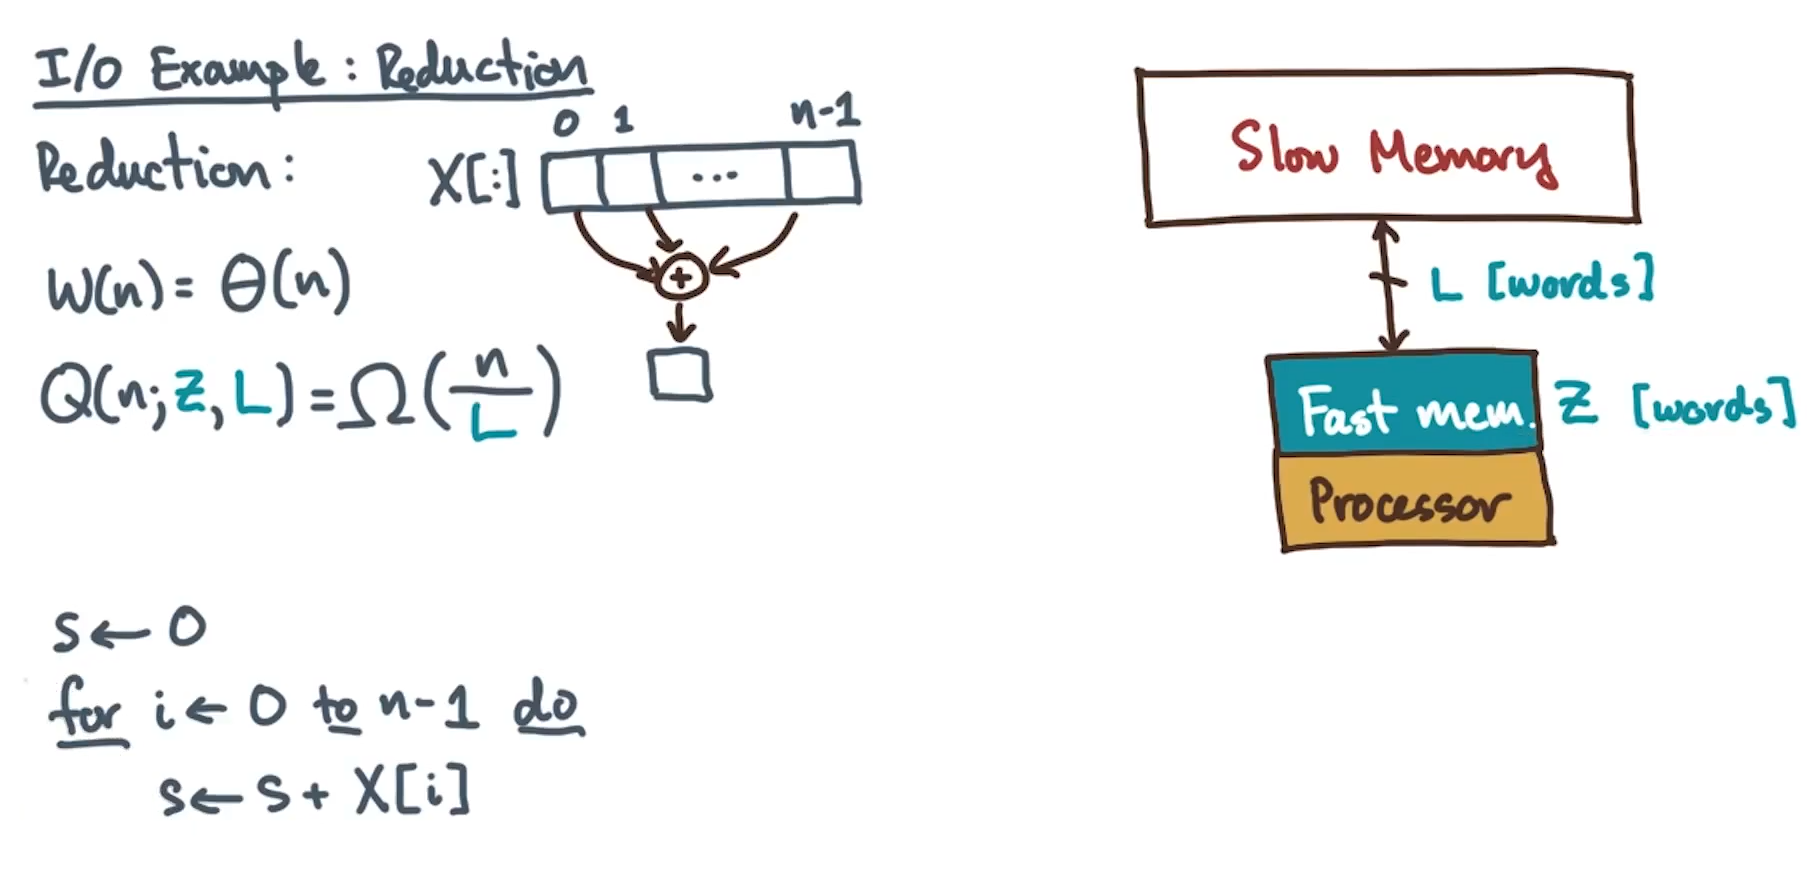 I/O Example: Reduction
0 1 n-1
Reduction: X[:] ...
W(n) = Θ(n)
+
Q(n; Z, L) = Ω(n/L)
s ← 0
for i ← 0 to n-1 do
s ← s + X[i]
Slow Memory
L [words]
Fast mem. Z [words]
Processor